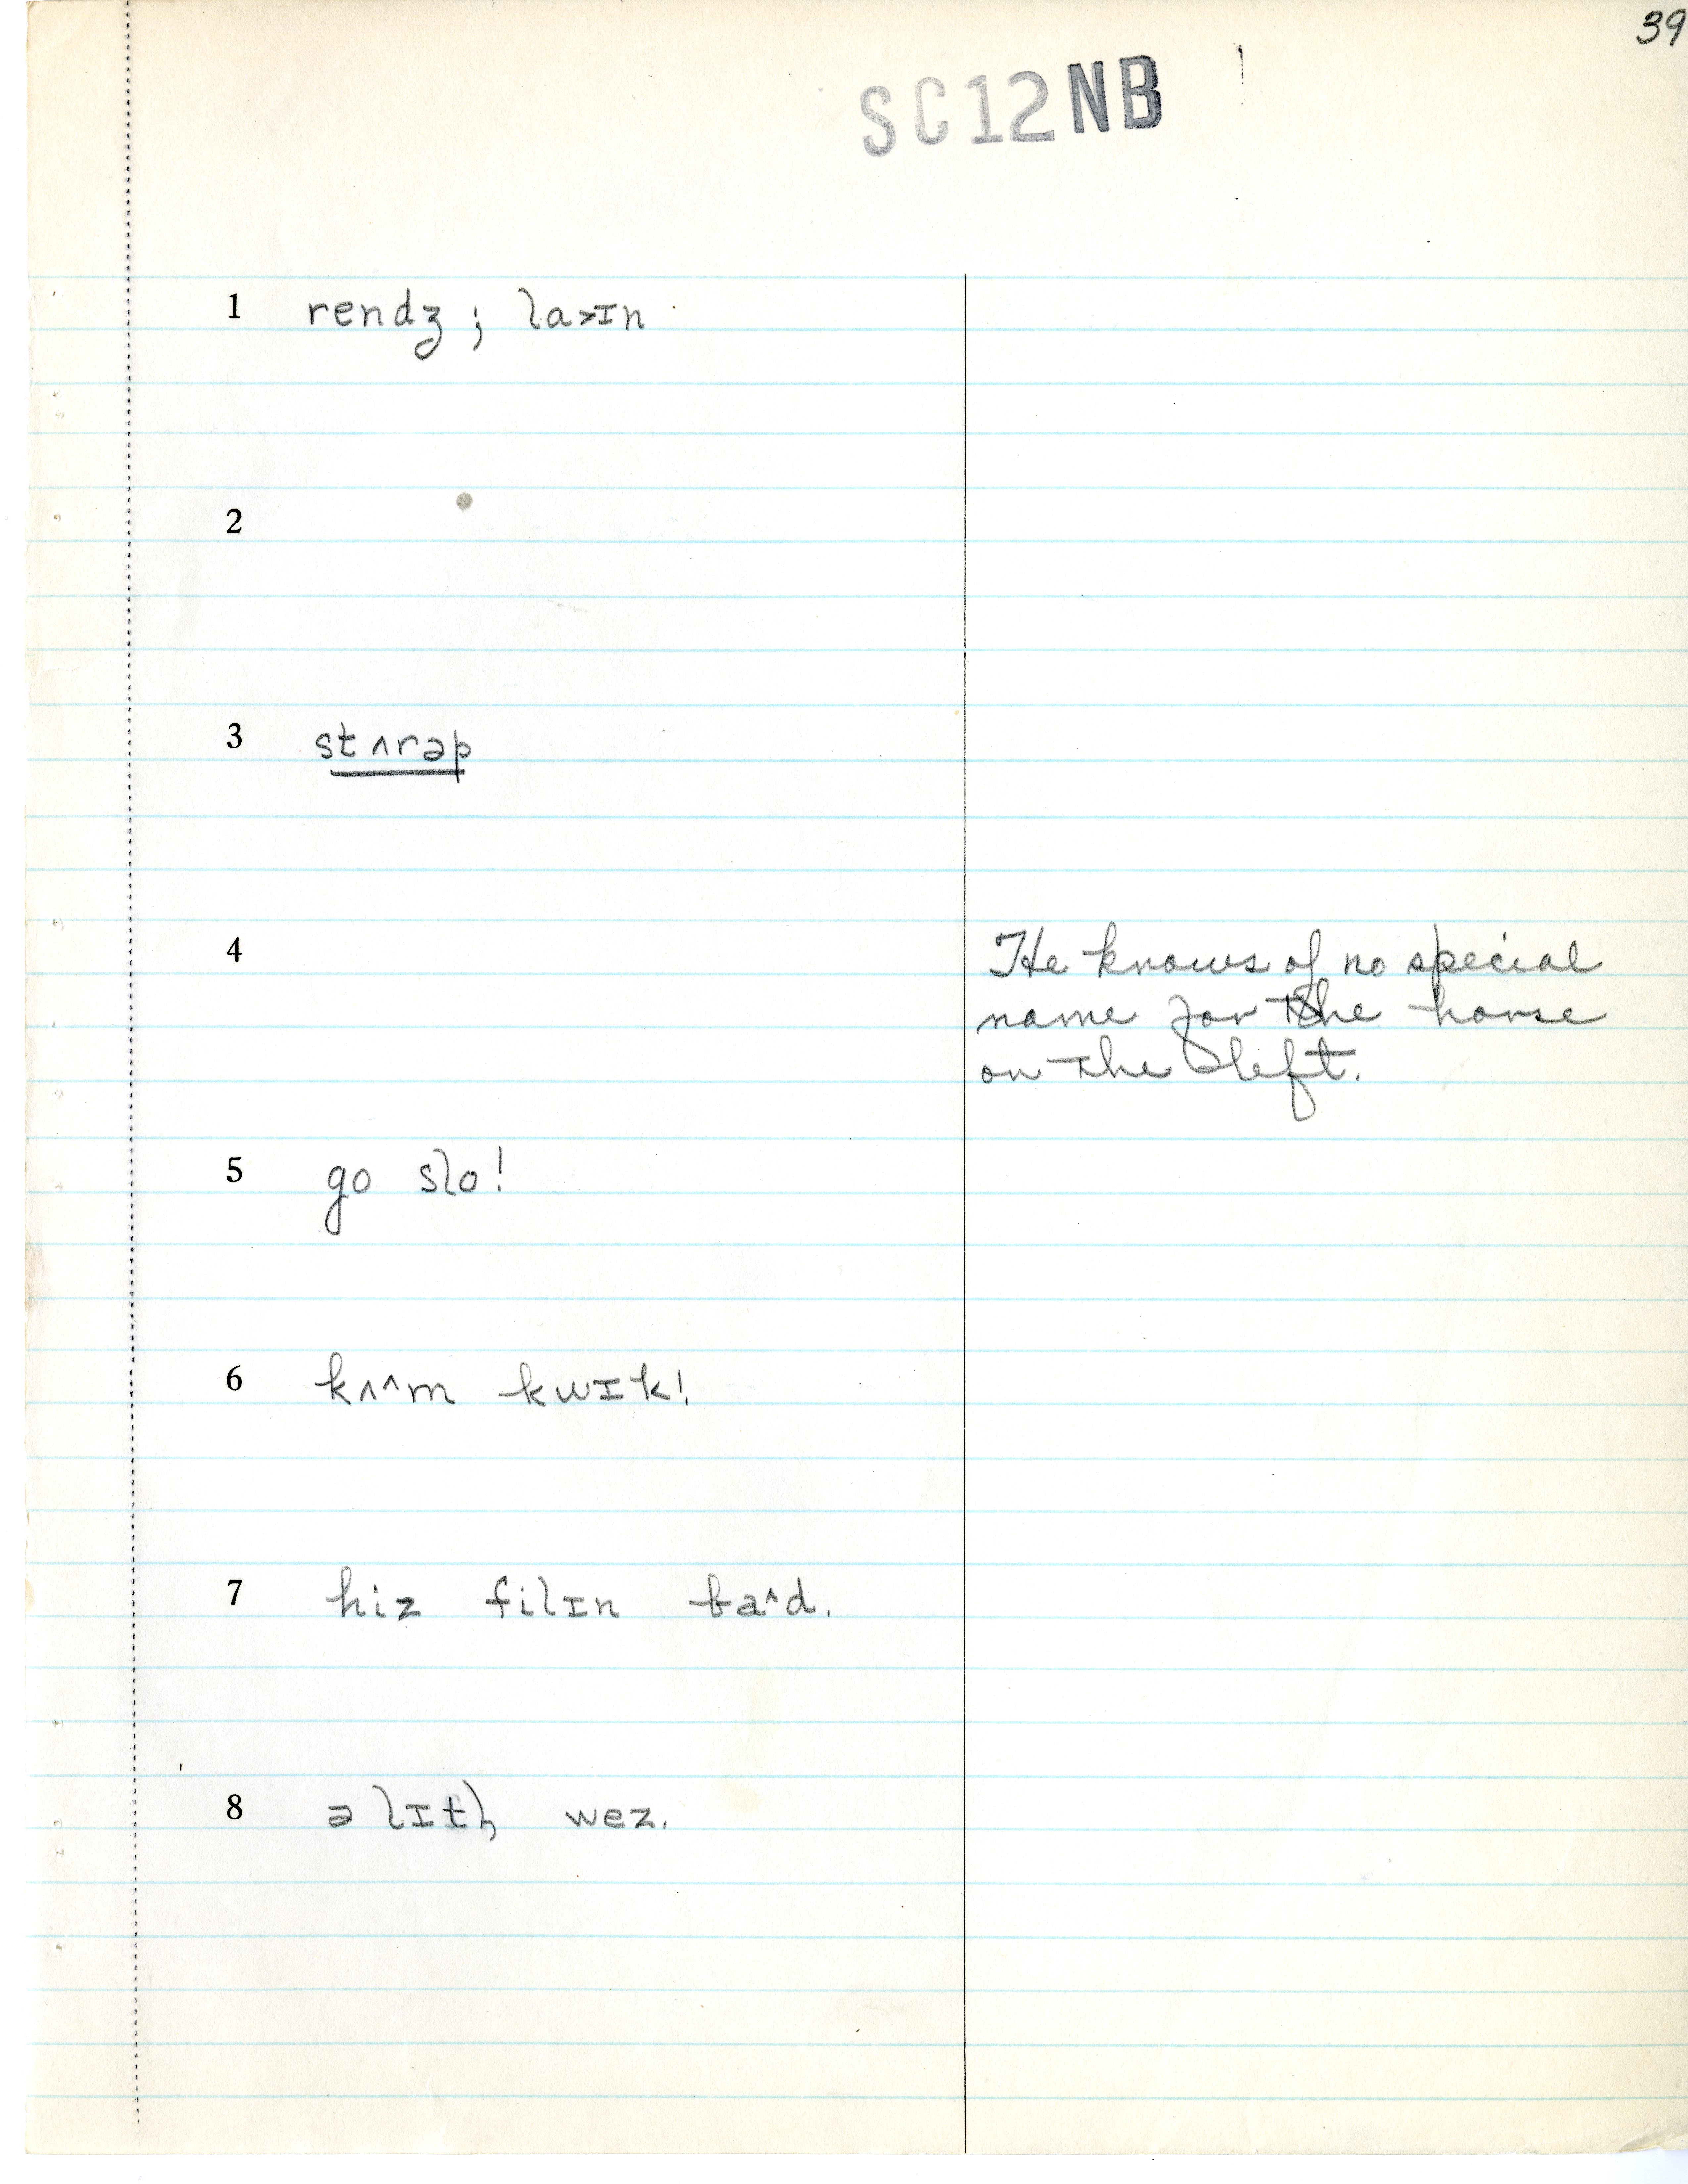 39
SC12NB
1 rendʒ ; la>ɪn
2
3 stʌrəp
4 He knows of no special
name for the horse
on the left.
5 go slo!
6 kʌ^m kwɪk!
7 hiz filɪn ba^d.
8 ə lɪtl̩ wez.